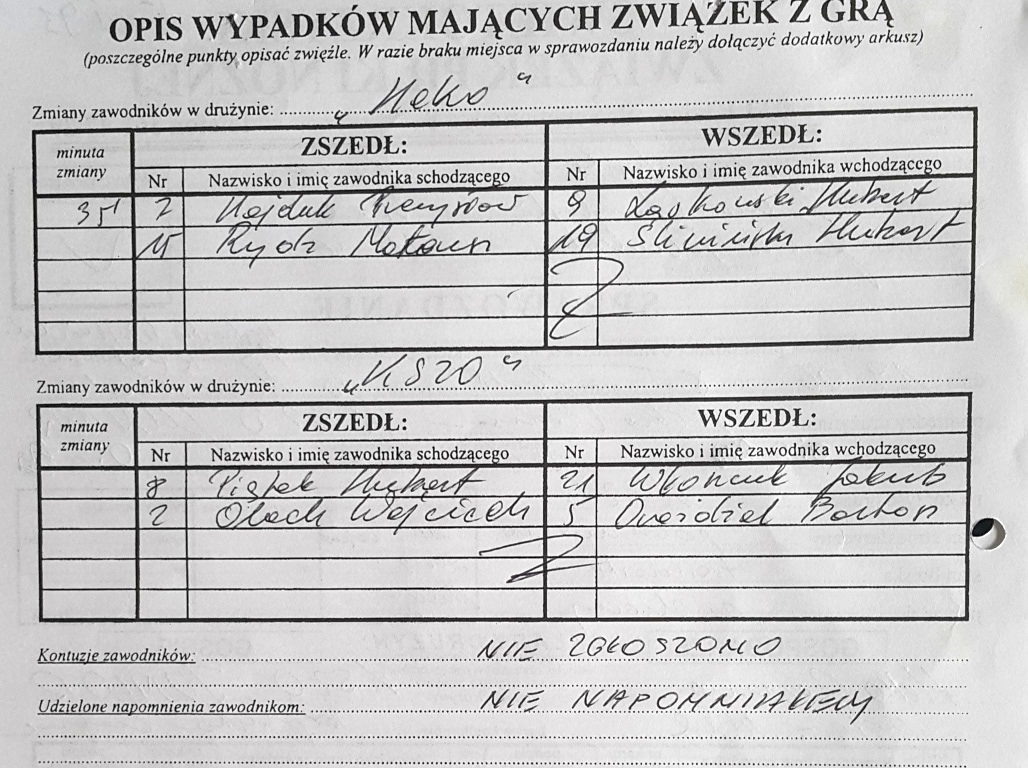 OPIS WYPADKÓW MAJĄCYCH ZWIĄZEK Z GRĄ
(poszczególne punkty opisać zwięźle. W razie braku miejsca w sprawozdaniu należy dołączyć dodatkowy arkusz)
Zmiany zawodników w drużynie: „Neko”
minuta zmiany ZSZEDŁ: WSZEDŁ:
Nr Nazwisko i imię zawodnika schodzącego Nr Nazwisko i imię zawodnika wchodzącego
35' 2 Hajduk 9 Laskowski Hubert
15 19 Śliwiński Hubert
Zmiany zawodników w drużynie: „KSZO”
minuta zmiany ZSZEDŁ: WSZEDŁ:
Nr Nazwisko i imię zawodnika schodzącego Nr Nazwisko i imię zawodnika wchodzącego
8 Piątek Hubert 21 Jakub
2 5
Kontuzje zawodników: NIE ZGŁOSZONO
Udzielone napomnienia zawodnikom: NIE NAPOMNIAŁEM